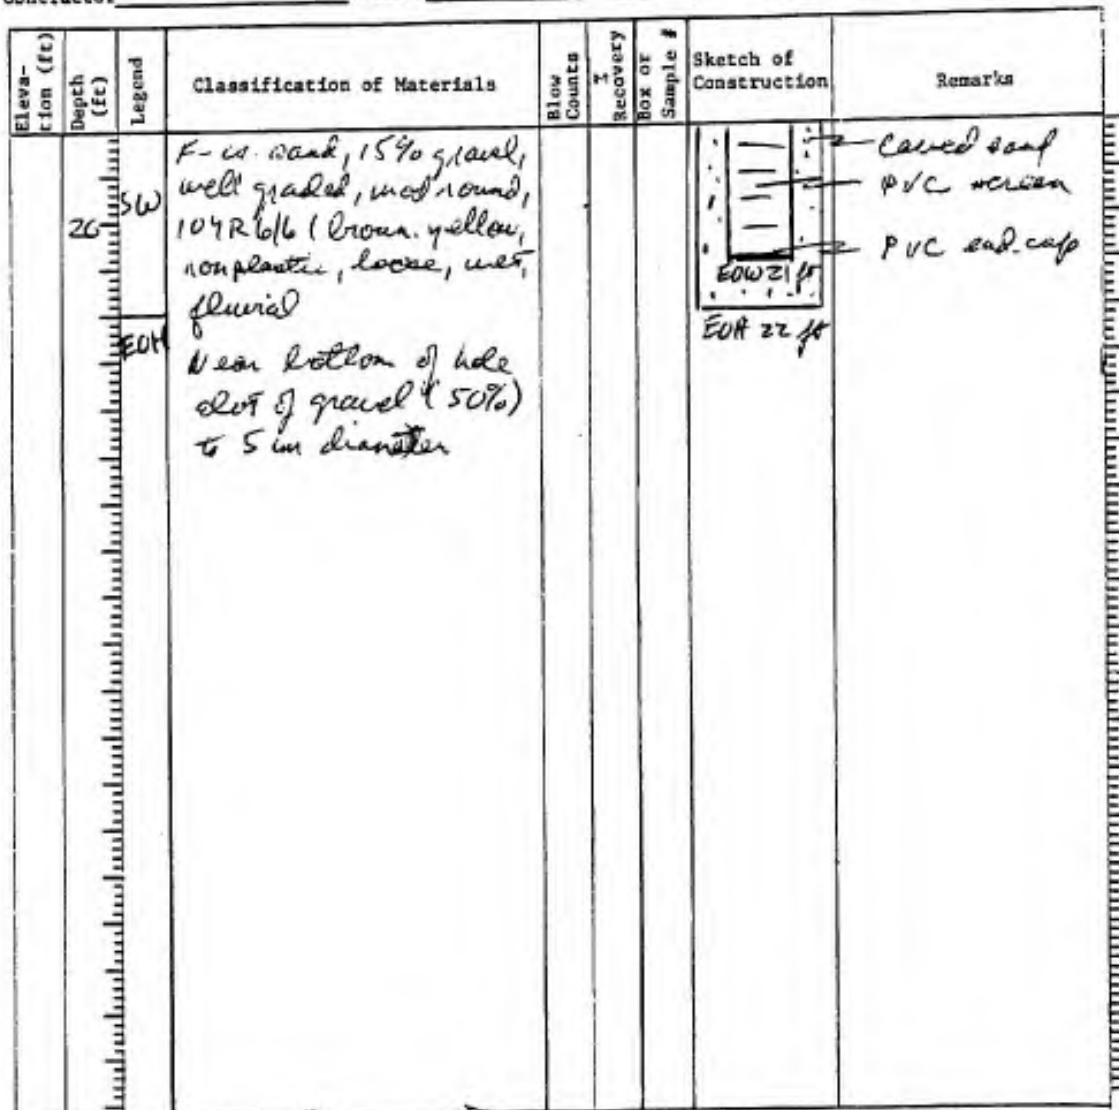 Eleva-
tion (ft)
Depth
(ft)
Legend
Classification of Materials
Blow
Counts
%
Recovery
Box or
Sample #
Sketch of
Construction
Remarks
F-cs. sand, 15% gravel,
well graded, mod round,
10YR 6/6 (brown. yellow,
nonplastic, loose, wet,
fluvial
Near bottom of hole
alot of gravel (50%)
to 5 cm diameter
20
SW
EOH
EOW 21 ft
EOH 22 ft
Caved sand
PVC screen
PVC end-cap